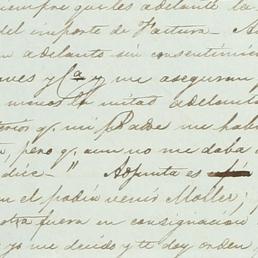 siempre que les adelante la
del importe de Factura - A
n adelanto sin consentimie
ues y Ca y me aseguran
menos la mitad adelanta
terios q. mi Padre me hab
, pero q. aun no me daba
dice -" Adjunta es
n el podia venir Moller;
otra fuera en consignacion
yo me decido y te doy orden